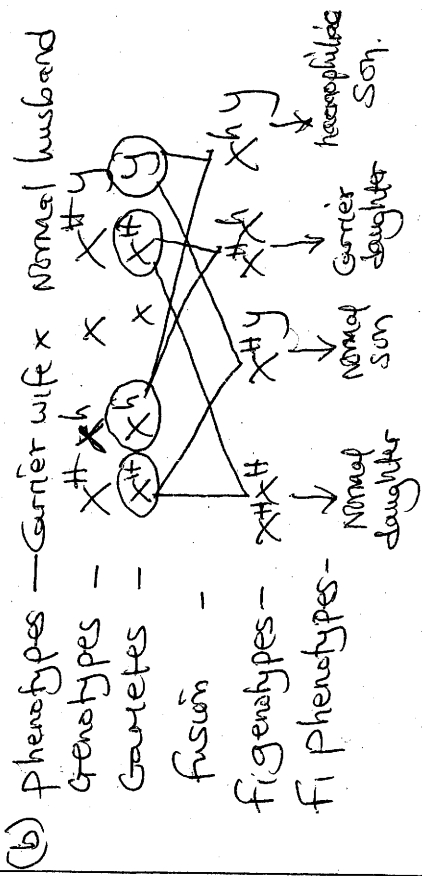 (b) Phenotypes — Carrier wife x Normal husband
Genotypes – X^H X^h x X^H y
Gametes – X^H X^h x X^H y
fusion –
fi genotypes – X^H X^H X^H y X^H X^h X^h y
fi phenotypes – Normal daughter Normal son Carrier daughter haemophiliac son.